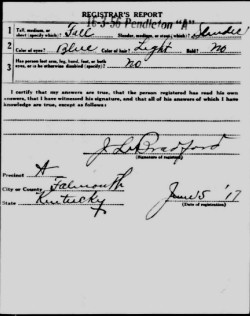 REGISTRAR'S REPORT
16-3-56 Pendleton "A"
1 Tall, medium, or short (specify which)? Tall Slender, medium, or stout (which)? Slender
2 Color of eyes? Blue Color of hair? Light Bald? No
3 Has person lost arm, leg, hand, foot, or both eyes, or is he otherwise disabled (specify)? no
I certify that my answers are true, that the person registered has read his own answers, that I have witnessed his signature, and that all of his answers of which I have knowledge are true, except as follows:
J. L. Bradford
(Signature of registrar)
Precinct A
City or County Falmouth
State Kentucky
June 5 '17
(Date of registration)